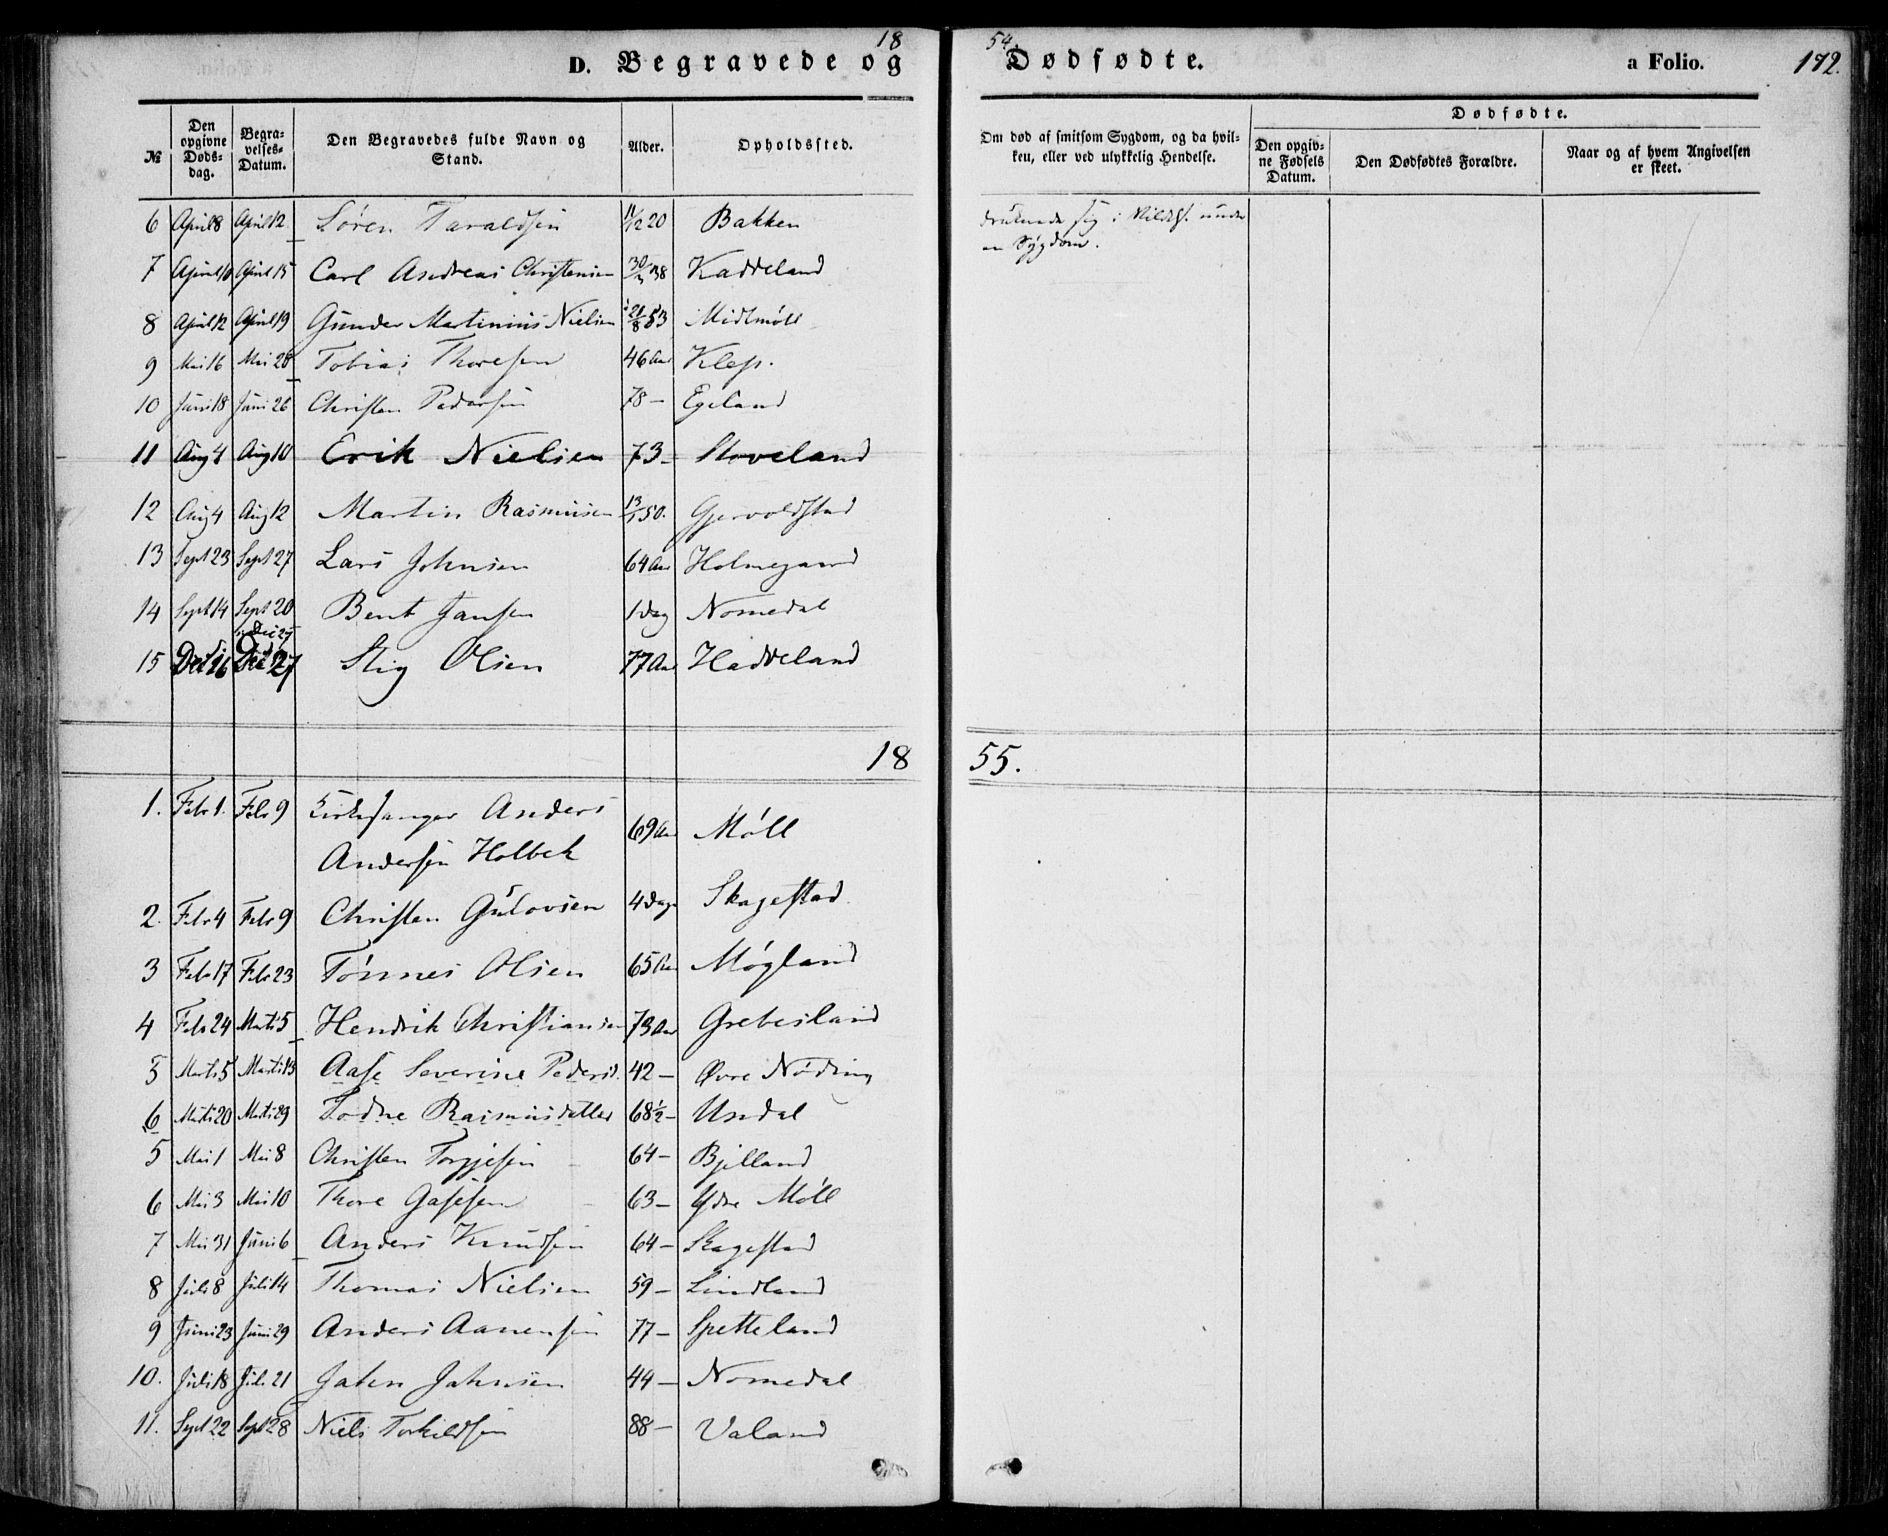 18 54.
D. Begravede og Dødfødte. a Folio. 172.
№ Den opgivne Døds-dag. Begra-velses-Datum. Den Begravedes fulde Navn og Stand. Alder. Opholdssted. Om død af smitsom Sygdom, og da hvil-ken, eller ved ulykkelig Hendelse. Dødfødte. Den opgiv-ne Fødsels Datum. Den Dødfødtes Forældre. Naar og af hvem Angivelsen er skeet.
6 April 8 April 12 Søren Taraldsen 11/12 20 Bakken druknede sig i Vildelse under
en Sygdom.
7 April 10 April 15 Carl Andreas Christensen 30/3 38 Kaddeland
8 April 12 April 19 Gunder Martinius Nielsen 21/8 53 Midtmøll
9 Mai 16 Mai 28 Tobias Thoresen 46 Aar Klep.
10 Juni 18 Juni 26 Christen Pedersen 78 – Egeland
11 Aug 4 Aug 10 Erik Nielsen 73 – Stoveland
12 Aug 4 Aug 12 Martin Rasmusen 13/1 50. Gjervoldstad
13 Sept 23 Sept 27 Lars Johnsen 64 Aar Holmegaard
14 Sept 14 Sept 20 Bent Jansen 1 Dag Nomedal
15 Dec 16 Dec 27 Stig Olsen 77 Aar Haddeland
18 55.
1. Febr 1. Febr 9 Kirkesanger Anders
Andersen Holbek 69 Aar Møll
2. Febr 4 Febr 9 Christen Gulovsen 4 Dage Skagestad
3 Febr 17 Febr 23 Tønnes Olsen 65 Aar Møgland
4 Febr 24 Marts 5 Hendrik Christiansen 73 Aar Grebesland
5 Marts 5 Marts 13 Aase Severine Pedersd. 42 – Øvre Nøding
6 Marts 20 Marts 29 Todne Rasmusdatter 68 1/2 – Undal
5 Mai 1 Mai 8 Christen Torgjesen 64 – Bjelland
6 Mai 3 Mai 10 Thore Gasesen 63 – Ydre Møll
7 Mai 31 Juni 6 Anders Knudsen 64 – Skagestad
8 Juli 8 Juli 14 Thomas Nielsen 59 – Lindland
9 Juni 23 Juni 29 Anders Aanensen 77 – Spetteland
10. Juli 18 Juli 21 Johen Johnsen 44 – Nomedal
11. Sept 22 Sept 28 Niels Torkildsen 88 – Valand